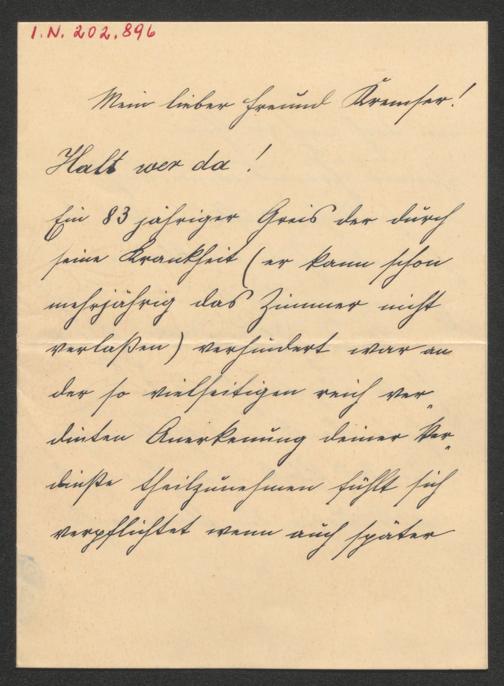 I.N. 202.896
Mein lieber Freund Kremser!
Halt wer da!
Ein 83 jähriger Greis der durch
seine Krankheit (er kann schon
mehrjährig das Zimmer nicht
verlaßen) verhindert war an
der so vielseitigen reich ver„
dinten Anerkenung deiner Ver„
dinste theilzunehmen fühlt sich
verpflichtet wenn auch später